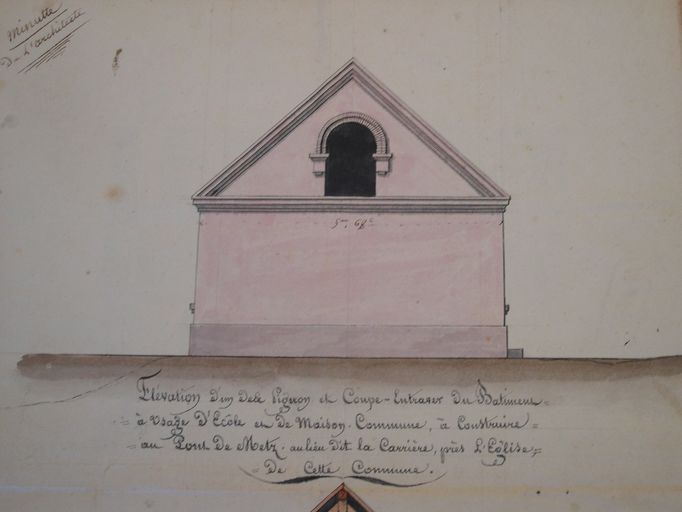 Minutte
De L'architecte
5m, 68c
Elévation D'un Des Pignon et Coupe-Entraver Du Batiment=
=à Usage D'École et De Maison Commune, à Construire=
=au Pont De Metz. au lieu Dit la Carrière, près L'Eglise=
=De Cette Commune.